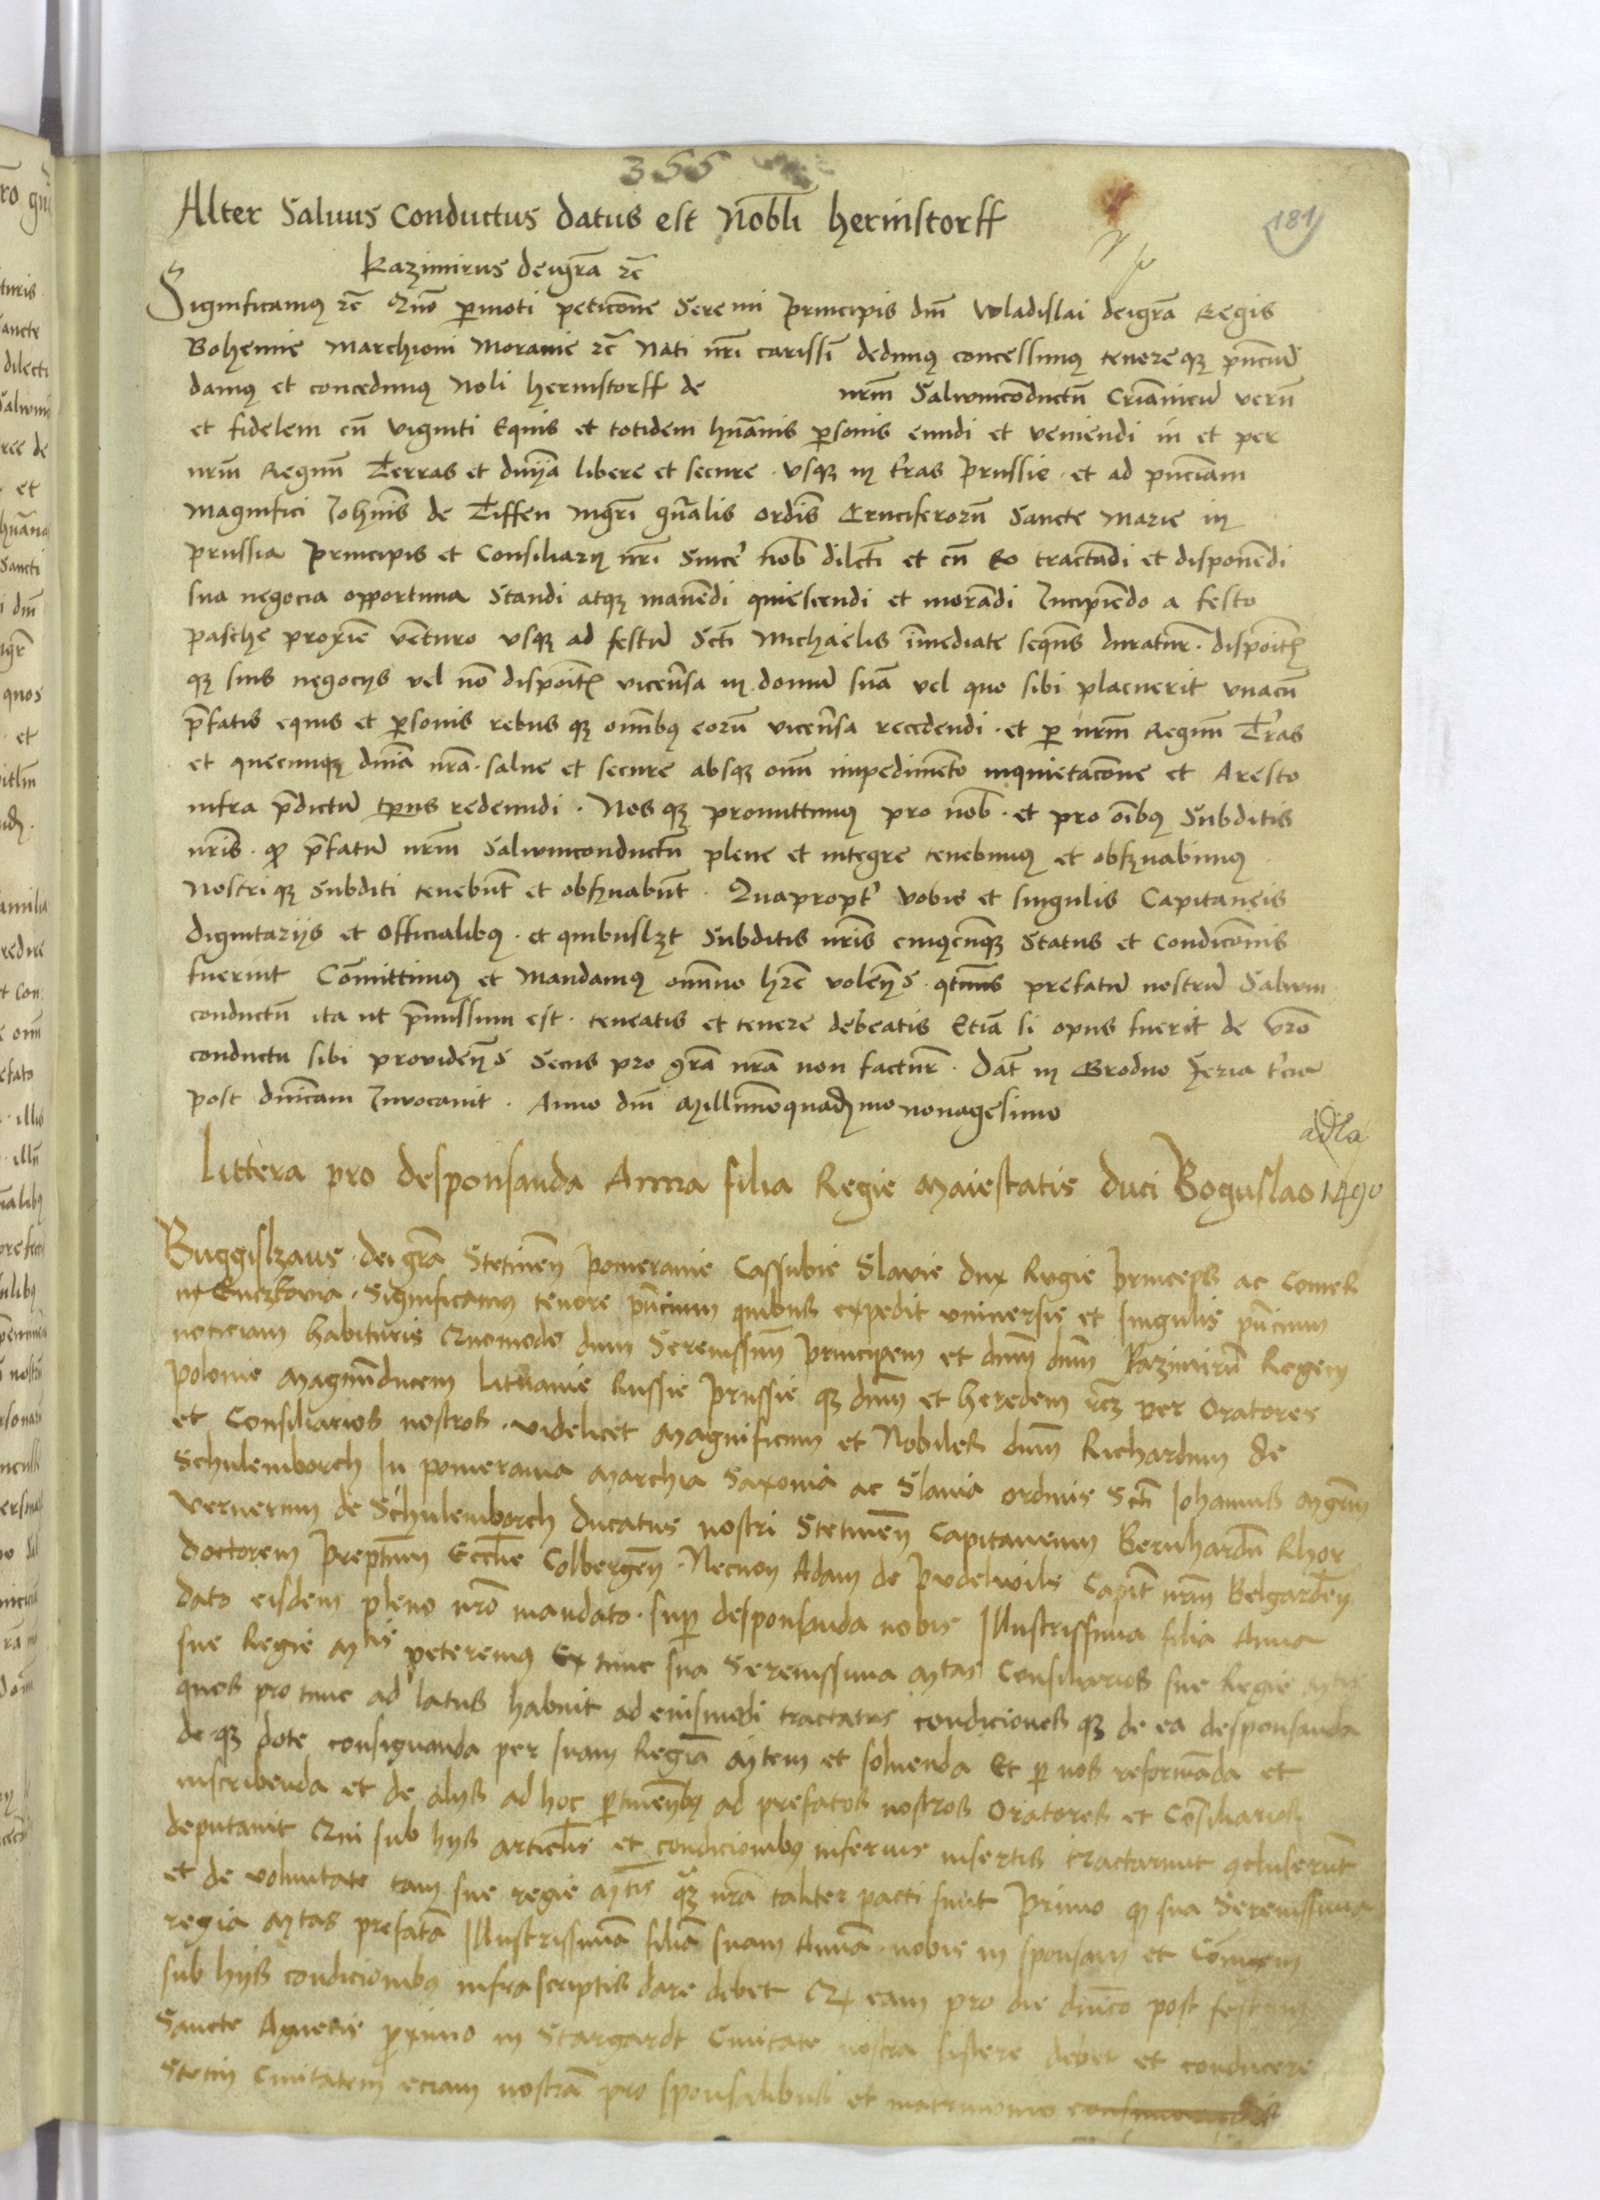 355
181
Alter Salvus Conductus datus est Nobli herinstorff
Kazimirus deigra rc
Significamus rc Quo permoti peticone Serenmi Principis dni Wladislai deigra Regis
Bohemie Marchioni Moravie rc Nati nri carissi dedimus concessimus tenoreque pncium
damus et concedimus Noli herinstorff de nrm Salvumconductu Crianicu veru
et fidelem cu viginti Equis et totidem humanis personis eundi et veniendi in et per
nrm Regnum Terras et dnia libere et secure usque in tras Prussie et ad pnciam
Magnifici Johnis de Tiffen Mgri gnralis ordis Cruciferoru Sancte Marie in
prussia Principis et Consiliarii nri Sincere nob dilcti et cu Eo tractadi et disponedi
sua negocia opportuna Standi atque manedi quiescendi et moradi Incipiedo a festo
pasche proxie veturo usque ad festu Scti Michaelis imediate sequns duratur dispoit
que suis negocys vel no dispoit vicevsa in domu sua vel quo sibi placuerit unacu
pfatis equis et personis rebus que omnibus eoru vicevsa recedendi et per nrm Regnum Tras
et quecunque dnia nra salve et secure absque omni impedimento inquietacone et Aresto
infra pdictu tpus redeundi Nos que promittimus pro nob et pro oibus Subditis
nris quod pfatu nrm Salvumconductu plene et integre tenebimus et observabimus
Nostri que Subditi tenebut et observabut Quapropt vobis et singulis Capitaneis
dignitariis et Officialibus et quibuslibet Subditis nris cuiuscunque Status et Condiconis
fuerint Comittimus et Mandamus omnino hre volentes qtinus prefatu nostru Salvum
conductu ita ut pmissum est teneatis et tenere debeatis Etia si opus fuerit de vro
conductu sibi providentes Secus pro gra nra non factur Dat in Grodno Feria tcia
post dnicam Invocavit Anno dni Millimoquadrimo nonagesimo
Littera pro desponsanda Anna filia Regie Maiestatis duci Boguslao 1490
Buggislzaus deigra Stetinen Pomeranie Cassubie Slavie dux Rugie Princeps ac Comes
Significamus tenore pncium quibus expedit universis et singulis pncium
noticiam habituris Quomodo dum Serenissimu Principem et dnum dnum Kazimiru Regem
Polonie Magnumducem Lituanie Russie Prussie que dnum et heredem rc per Oratores
et Consiliarios nostros videlicet Magnificum et Nobiles dnum Richardum de
Schulemborch In pomerania Marchia Saxonia ac Slavia ordinis Scti Johannis Mgrum
Vernerum de Schulemborch ducatus nostri Stetinen Capitaneum Bernhardu Rhor
doctorem Preptum Ecclie Colbergen Necnon Adam de Pudelwils Capit nrm Belgarden
dato eisdem pleno nro mandato super desponsanda nobis Illustrissima filia Anna
sue Regie Mtis peteremus Ex tunc sua Serenissima Mtas Consiliarios sue Regie Mtis
quos pro tunc ad latus habuit ad eiusmodi tractatus condiciones que de ea desponsanda
de que dote consignanda per suam Regia Mtem et solvenda Et per nos reformada et
inscribenda et de alys ad hoc pertinentibus ad prefatos nostros Oratores et Cosiliarios
deputavit Qui sub hys articlis et condicionibus inferius insertis tractarunt concluserut
et de voluntate tam sue regie Mtis quam nra taliter pacti sunt Primo quod sua Serenissima
regia Mtas prefata Illustrissima filia suam Anna nobis in sponsam et Coniugem
sub hys condicionibus infrascriptis dare debet Quod eam pro die dnico post festum
Sancte Agnetis proximo in Stargardt Civitate nostra sistere debet et conducere
Stetin Civitatem eciam nostra pro sponsalibus et matrimonio